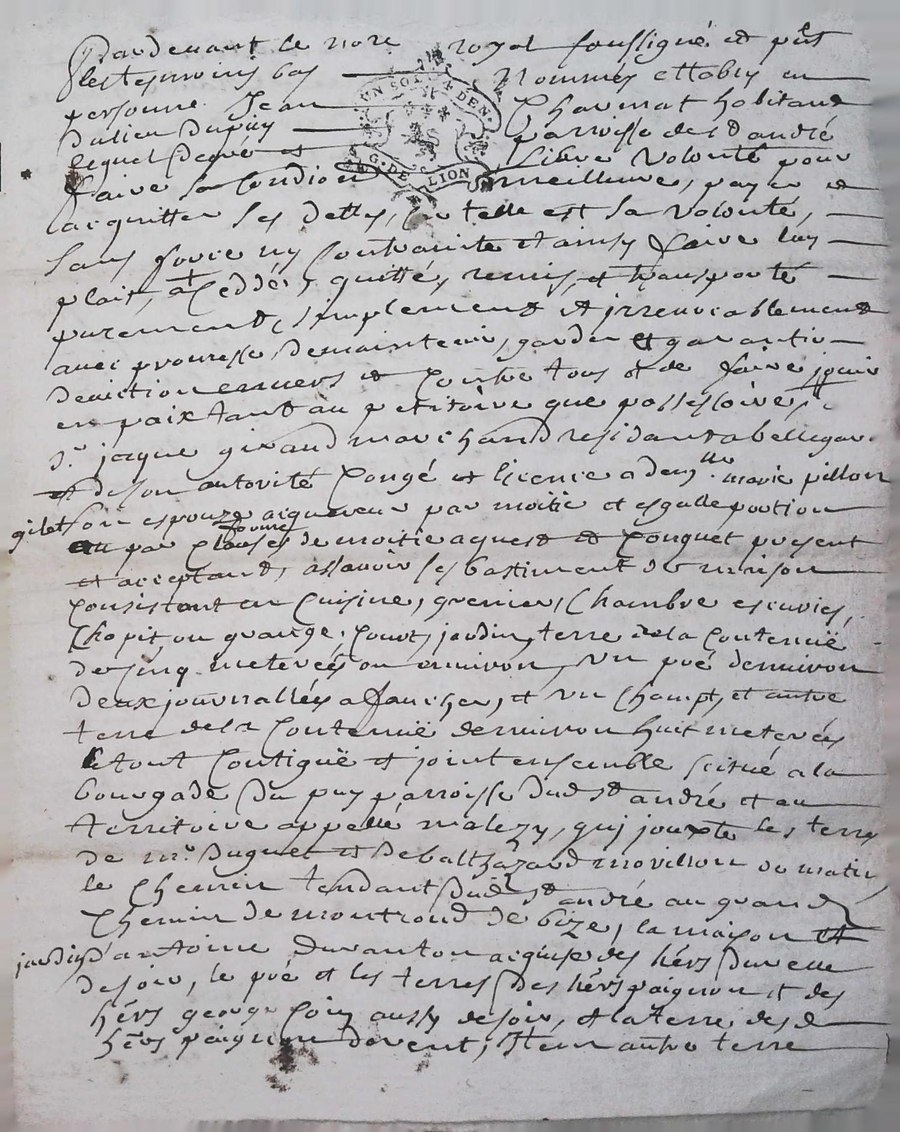 Pardevant le nore royal soussigné et pñt
les tesmoins bas nommés estably en
personne Jean Thavenat habitant
du lieu Dupuy parroisse de st andré
lequel de gré et libre volonté pour
faire sa condion meilleure, payer et
acquitter ses dettes, car telle est sa volonté,
sans force ny contrainte et ainsy faire luy
plait, a ceddé, quitté, remis, et transporté
purement, simplement et jrrevocablement
avec promesse de maintenir, garder et garantir
deviction envers et contre tous et de faire jouir
en paix tant au petitoire que possessoire,
sr jacque giraud marchand residant a bellegar
et de son autorité congé et licence a demlle marie pillon
son espouze aiquereur par moitié et esgalle portion
gilet
forme
ou par clauses de moitié aquest et conquet present
et acceptant, assavoir ses bastiment de maison
consistant en cuisine, grenier, chambre escuries,
chapit ou grange, court, jardin, terre de la contenuë
de cinq meterées ou environ, un pré denviron
deux journallées a faucher, et un champt et autre
terre de la contenuë denviron huit meterées
le tout contiguë et joint ensemble scitué a la
bourgade du puy parroisse dud st andré et au
territoire appellé malezy, quj jouxte les terres
de mr duguet et de balthazard movillon de matin,
le chemin tendant dud st andré au grand
chemin de montrond de bize, la maison et
jardin d'antoine duranton acquise des hérs
de soir, le pré et les terres des hérs paignon et des
hérs george coin aussy de soir, et la terre des d
hérs paignon de vent, Item autre terre
UN SOL 4 DEN.
G. DE LION